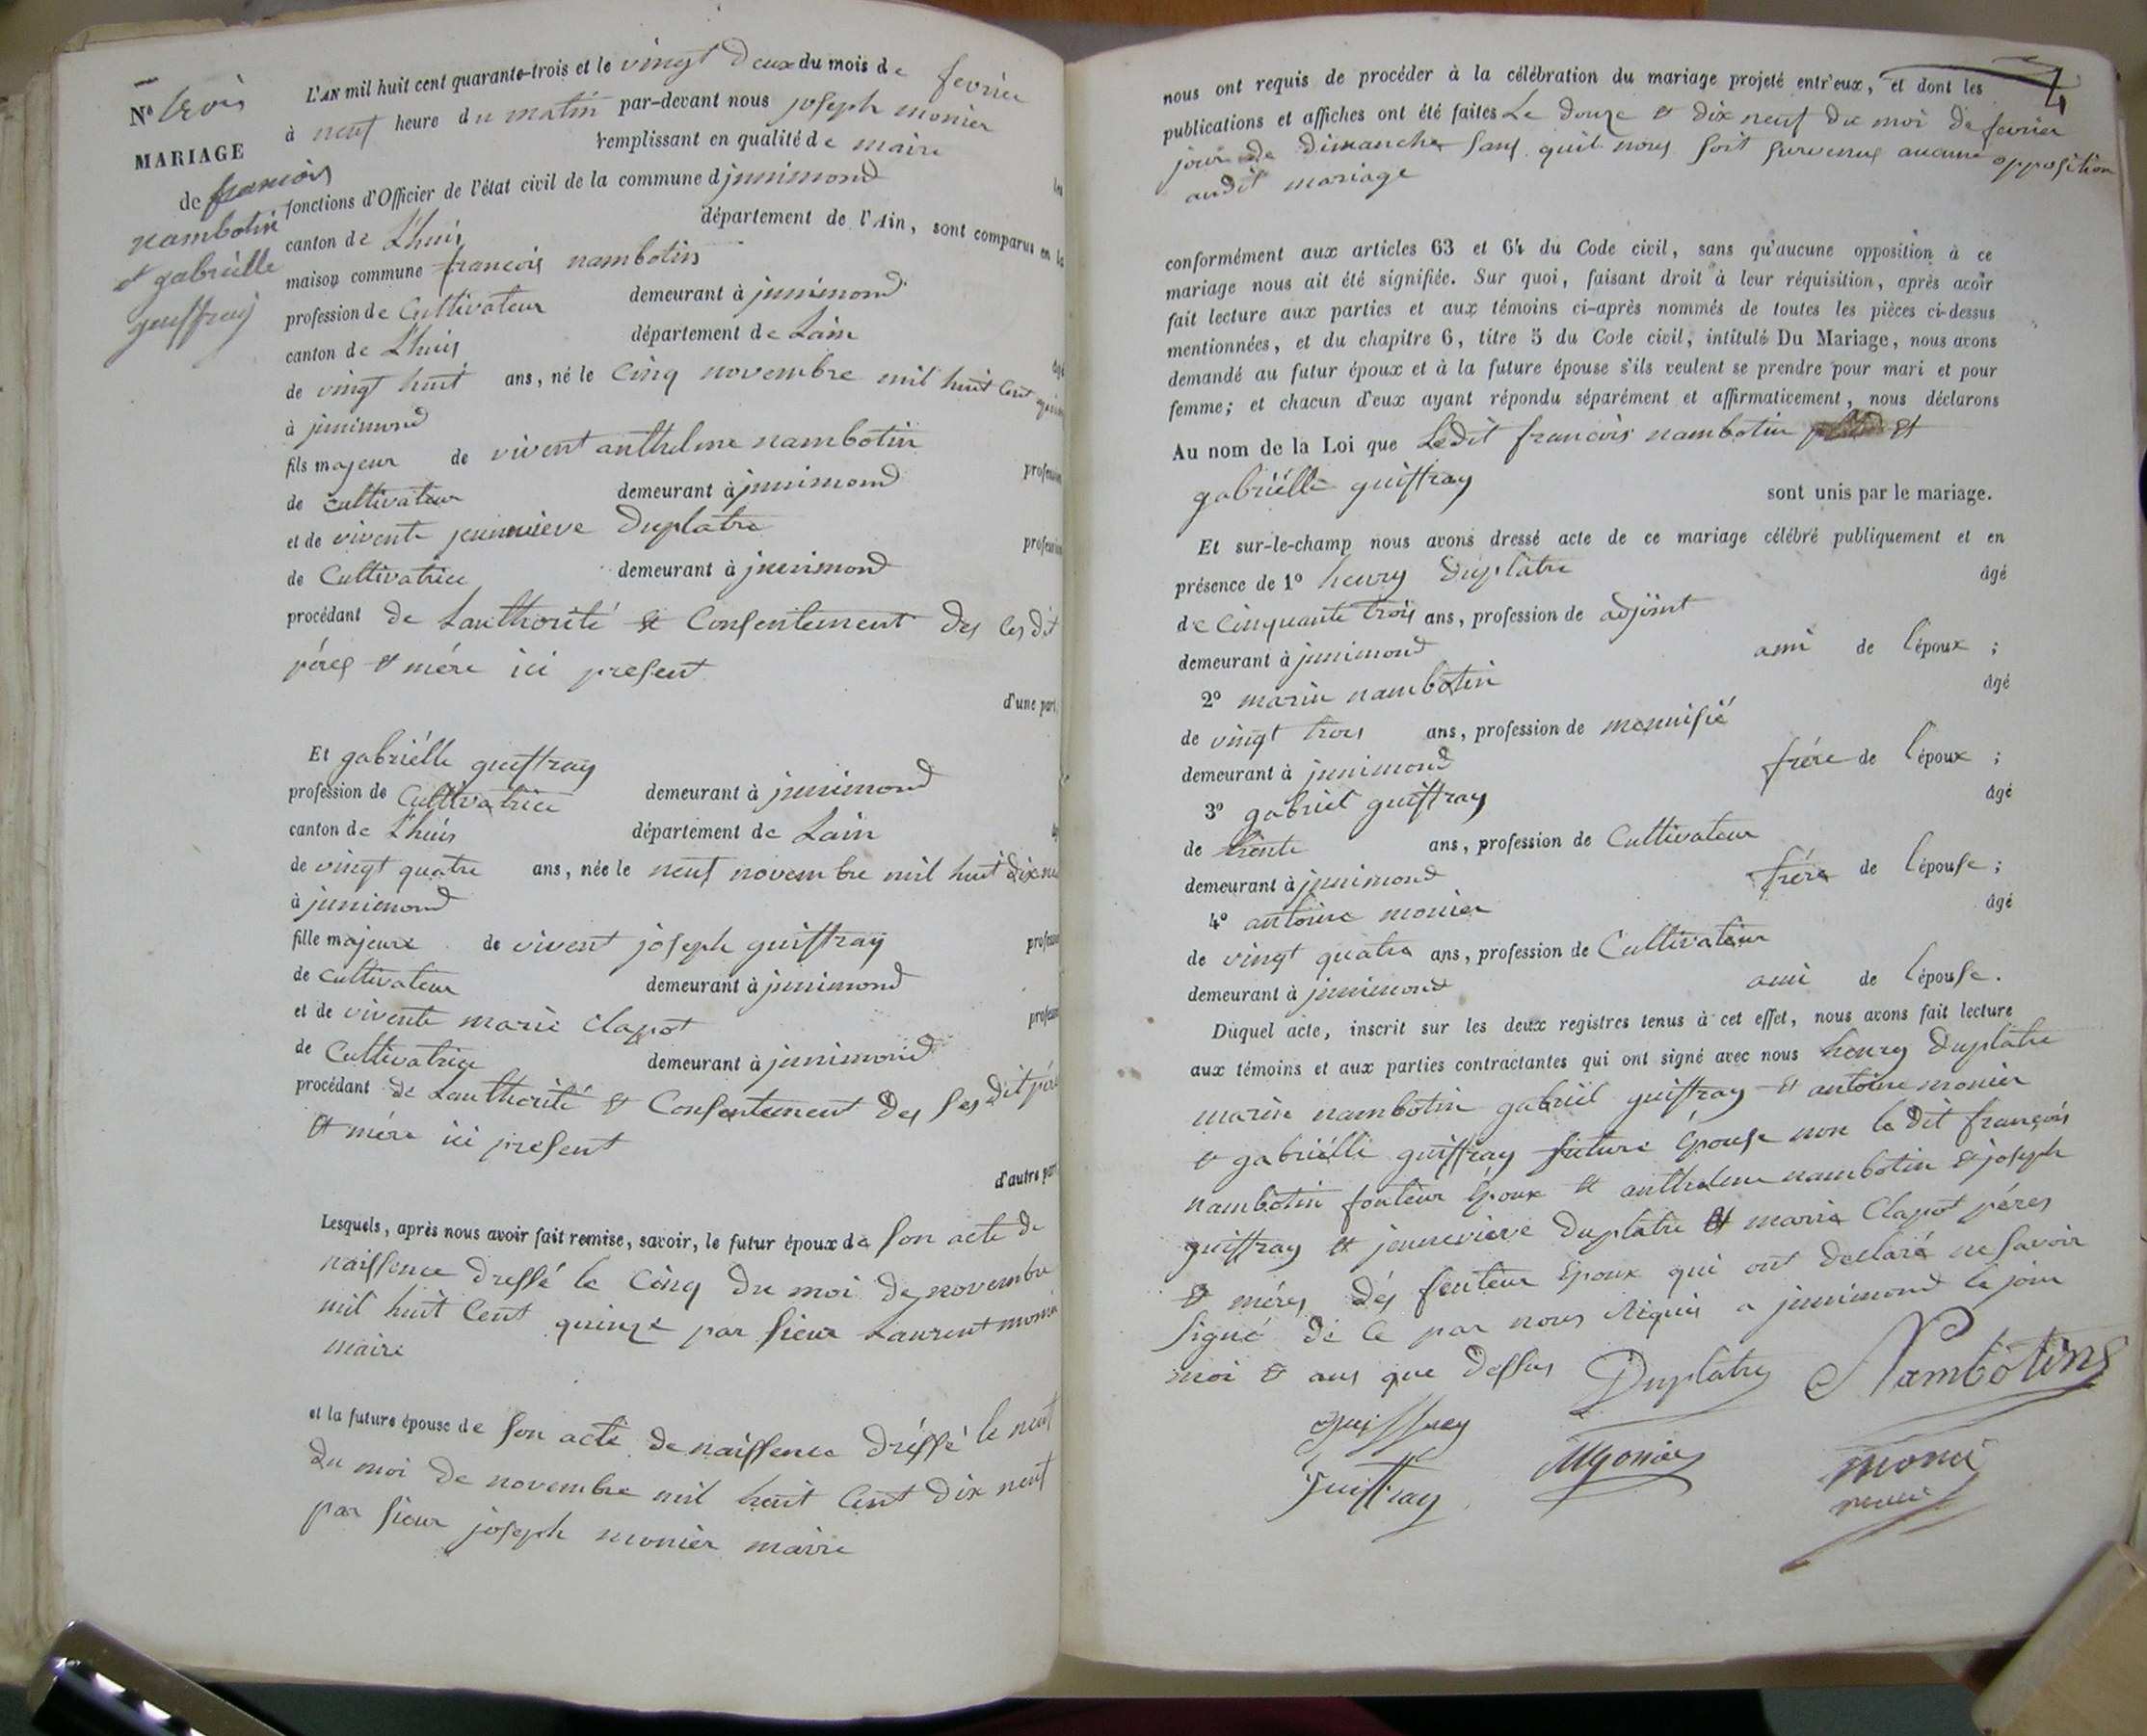 N° trois
MARIAGE
de francois
nambotin
et gabriélle
guiffray
L'AN mil huit cent quarante-trois et le vingt Deux du mois de fevrier
à neuf heure du matin par-devant nous joseph monier
remplissant en qualité de maire les
fonctions d'Officier de l'état civil de la commune d junimond
canton de L'huis département de l'Ain, sont comparus en la
maison commune francois nambotin
profession de Cultivateur demeurant à junimond
canton de L'huis département de Lain âgé
de vingt huit ans, né le Cinq novembre mil huit Cent
à junimond
fils majeur de vivent anthelme nambotin profession
de cultivateur demeurant à junimond
et de vivente jennevieve Duplatre profession
de Cultivatrice demeurant à junimond
procédant de Lauthorité et Consentement des ces dit
péres et mére ici present
d'une part,
Et gabriélle guiffray
profession de Cultivatrice demeurant à junimond
canton de L'huis département de Lain
de vingt quatre ans, née le neuf novembre mil huit dix
à junimond
fille majeure de vivent joseph guiffray profession
de cultivateur demeurant à junimond
et de vivente marie Clapot profession
de Cultivatrice demeurant à junimond
procédant de Lauthorité et Consentement des ses dit pére
et mére ici present
d'autre part
Lesquels, après nous avoir fait remise, savoir, le futur époux de son acte de
naissence dressé le Cinq du moi de novembre
mil huit Cent quinze par sieur Laurent
maire
et la future épouse de son acte de naissence dréssé le neuf
du moi de novembre mil huit Cent dix neuf
par sieur joseph monier maire
4
nous ont requis de procéder à la célébration du mariage projeté entr'eux, et dont les
publications et affiches ont été faites Le douze et dix neuf du moi de fevrier
jour de dimanche sans quil nous soit survenus aucune opposition
audit mariage
conformément aux articles 63 et 64 du Code civil, sans qu'aucune opposition à ce
mariage nous ait été signifiée. Sur quoi, faisant droit à leur réquisition, après avoir
fait lecture aux parties et aux témoins ci-après nommés de toutes les pièces ci-dessus
mentionnées, et du chapitre 6, titre 5 du Code civil, intitulé Du Mariage, nous avons
demandé au futur époux et à la future épouse s'ils veulent se prendre pour mari et pour
femme; et chacun d'eux ayant répondu séparément et affirmativement, nous déclarons
Au nom de la Loi que Ledit francois nambotin et
gabriélle guiffray sont unis par le mariage.
Et sur-le-champ nous avons dressé acte de ce mariage célébré publiquement et en
présence de 1° henry Duplatre âgé
de Cinquante trois ans, profession de adjoint
demeurant à junimond ami de l'époux ;
2° marin nambotin âgé
de vingt trois ans, profession de mennisié
demeurant à junimond frére de l'époux ;
3° gabriel guiffray âgé
de trente ans, profession de Cultivateur
demeurant à junimond frére de l'épouse ;
4° antoine monier âgé
de vingt quatre ans, profession de Cultivateur
demeurant à junimond ami de l'épouse.
Duquel acte, inscrit sur les deux registres tenus à cet effet, nous avons fait lecture
aux témoins et aux parties contractantes qui ont signé avec nous henry Duplatre
marin nambotin gabriel guiffray et antoine monier
et gabriélle guiffray future épouse non le dit françois
nambotin fouteur époux et anthelme nambotin et joseph
guiffray et jennevieve Duplatre et marie Clapot péres
et méres dés fenteur époux qui ont declaré ne savoir
signé de ce par nous Riquis a junimond le jour
moi et ans que dessus Duplatre Nambotins
guiffray
guiffray Monier monié
maire